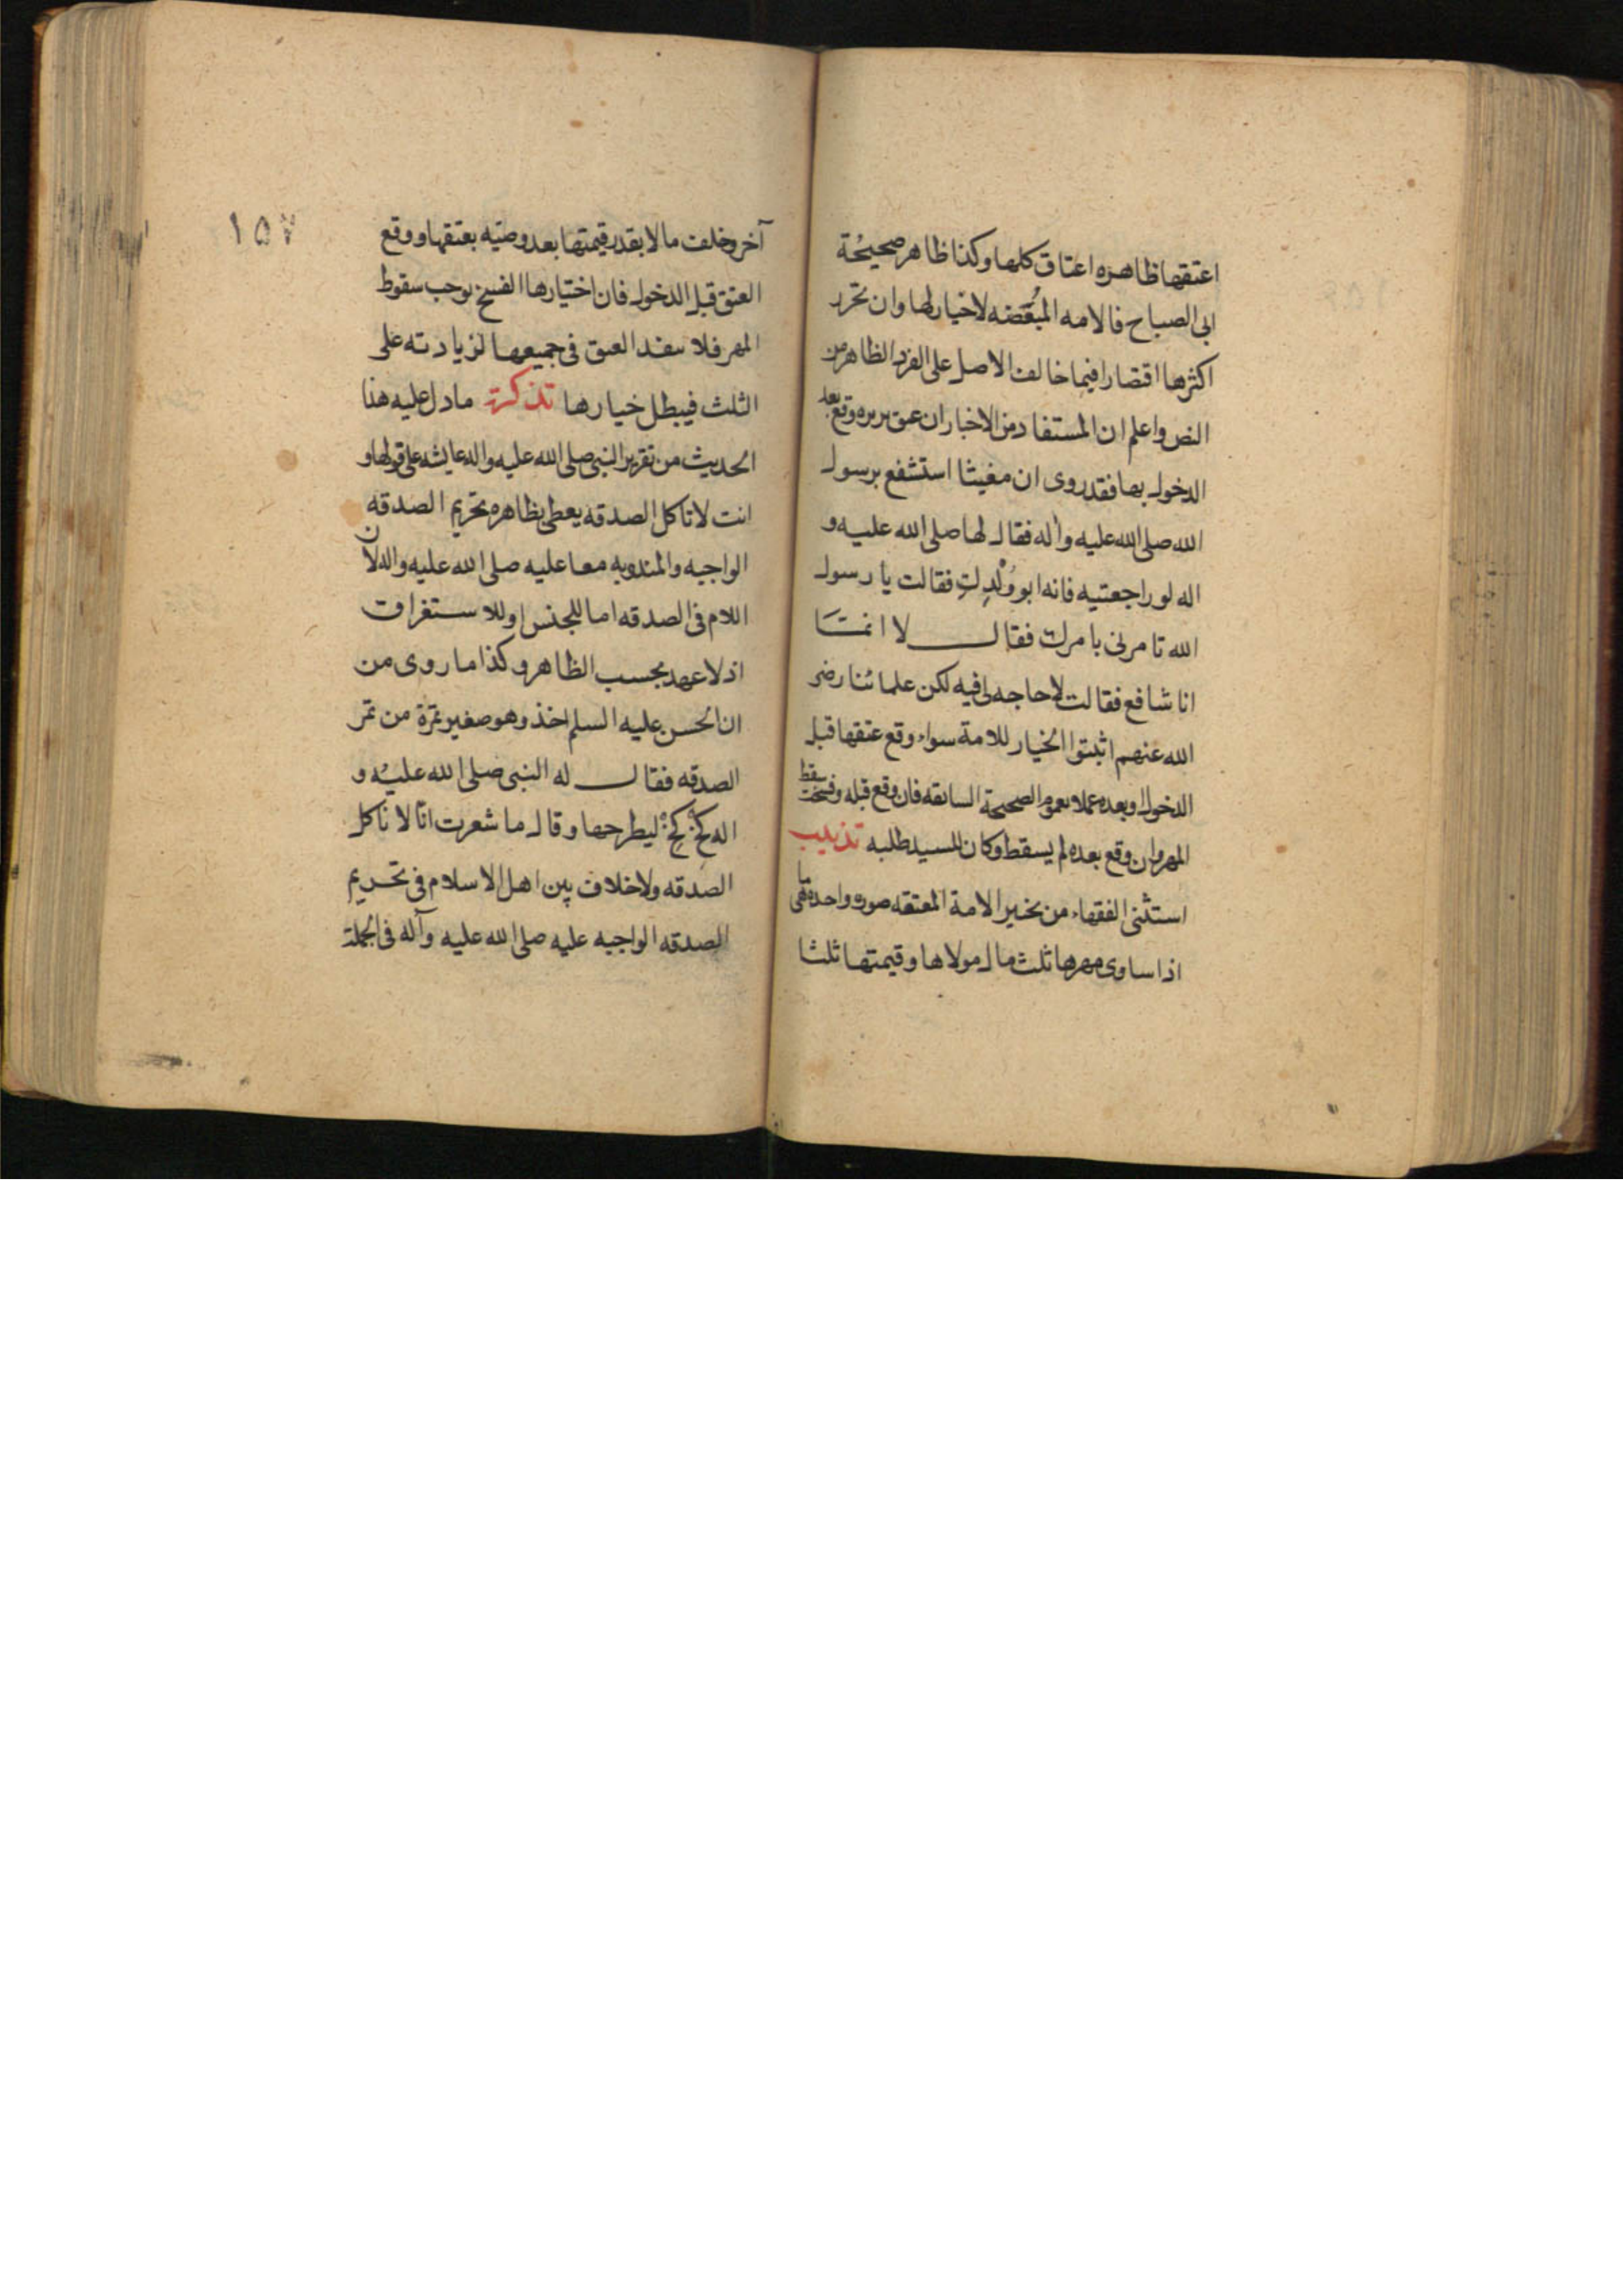 اعتقها ظاهره اعتاق كلها وكذا ظاهر صحيحة
ابى الصباح فالامه المبعّضه لا خيار لها وان تحرر
اكثرها اقتصارا فيما خالف الاصل على الفرد الظاهر من
النص واعلم ان المستفاد من الاخبار ان عتق بريره وقع بعد
الدخول بها فقد روى ان مغيثا استشفع برسول
الله صلى الله عليه واله فقال لها صلى الله عليه و
اله لو راجعتيه فانه ابو وُلْدِكِ فقالت يا رسول
الله تامرنى بامرك فقال لا انمـــا
انا شافع فقالت لا حاجه لى فيه لكن علمائنا رضى
الله عنهم اثبتوا الخيار للامة سواء وقع عتقها قبل
الدخول او بعده عملا بعموم الصحيحة السابقه فان وقع قبله وفسخت سقط
المهر وان وقع بعده لم يسقط وكان للسيد طلبه تذنيب
استثنى الفقهاء من تخيير الامة المعتقه صورة واحدة وهى ما
اذا ساوى مهرها ثلث مال مولاها وقيمتها ثلثا
١٥٧
آخر وخلف مالا بقدر قيمتها بعد وصيّه بعتقها ووقع
العتق قبل الدخول فان اختيارها الفسخ يوجب سقوط
المهر فلا ينفذ العتق فى جميعها لزيادته على
الثلث فيبطل خيارها تذكرة ما دل عليه هذا
الحديث من تقرير النبى صلى الله عليه واله عايشه على قولها و
انت لا تاكل الصدقه يعطى بظاهره تحريم الصدقه
الواجبه والمندوبه معا عليه صلى الله عليه واله لان
اللام فى الصدقه اما للجنس او للاستغراق
اذ لا عهد بحسب الظاهر وكذا ما روى من
ان الحسن عليه السلم اخذ وهو صغير تمرة من تمر
الصدقه فقال له النبى صلى الله عليه و
اله كخ كخ ليطرحها وقال ما شعرت انّا لا ناكل
الصدقه ولا خلاف بين اهل الاسلام فى تحريم
الصدقه الواجبه عليه صلى الله عليه وآله فى الجملة